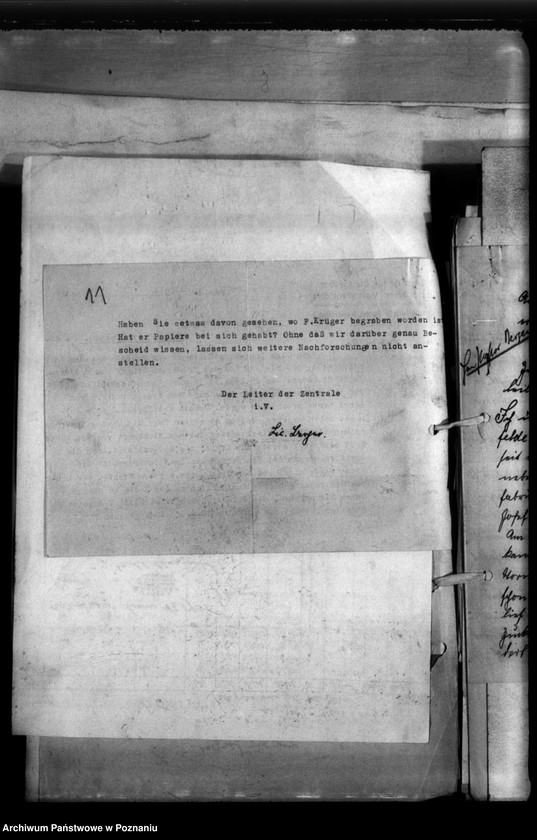 11
Haben Sie etwas davon gesehen, wo F.Krüger begraben worden is
Hat er Papiere bei sich gehabt? Ohne daß wir darüber genau Be-
scheid wissen, lassen sich weitere Nachforschungen nicht an-
stellen.
Der Leiter der Zentrale
i.V.
Lic. Berger.
Ich
felde
seit
fabri
Am
kam
schon
lief
Archiwum Państwowe w Poznaniu